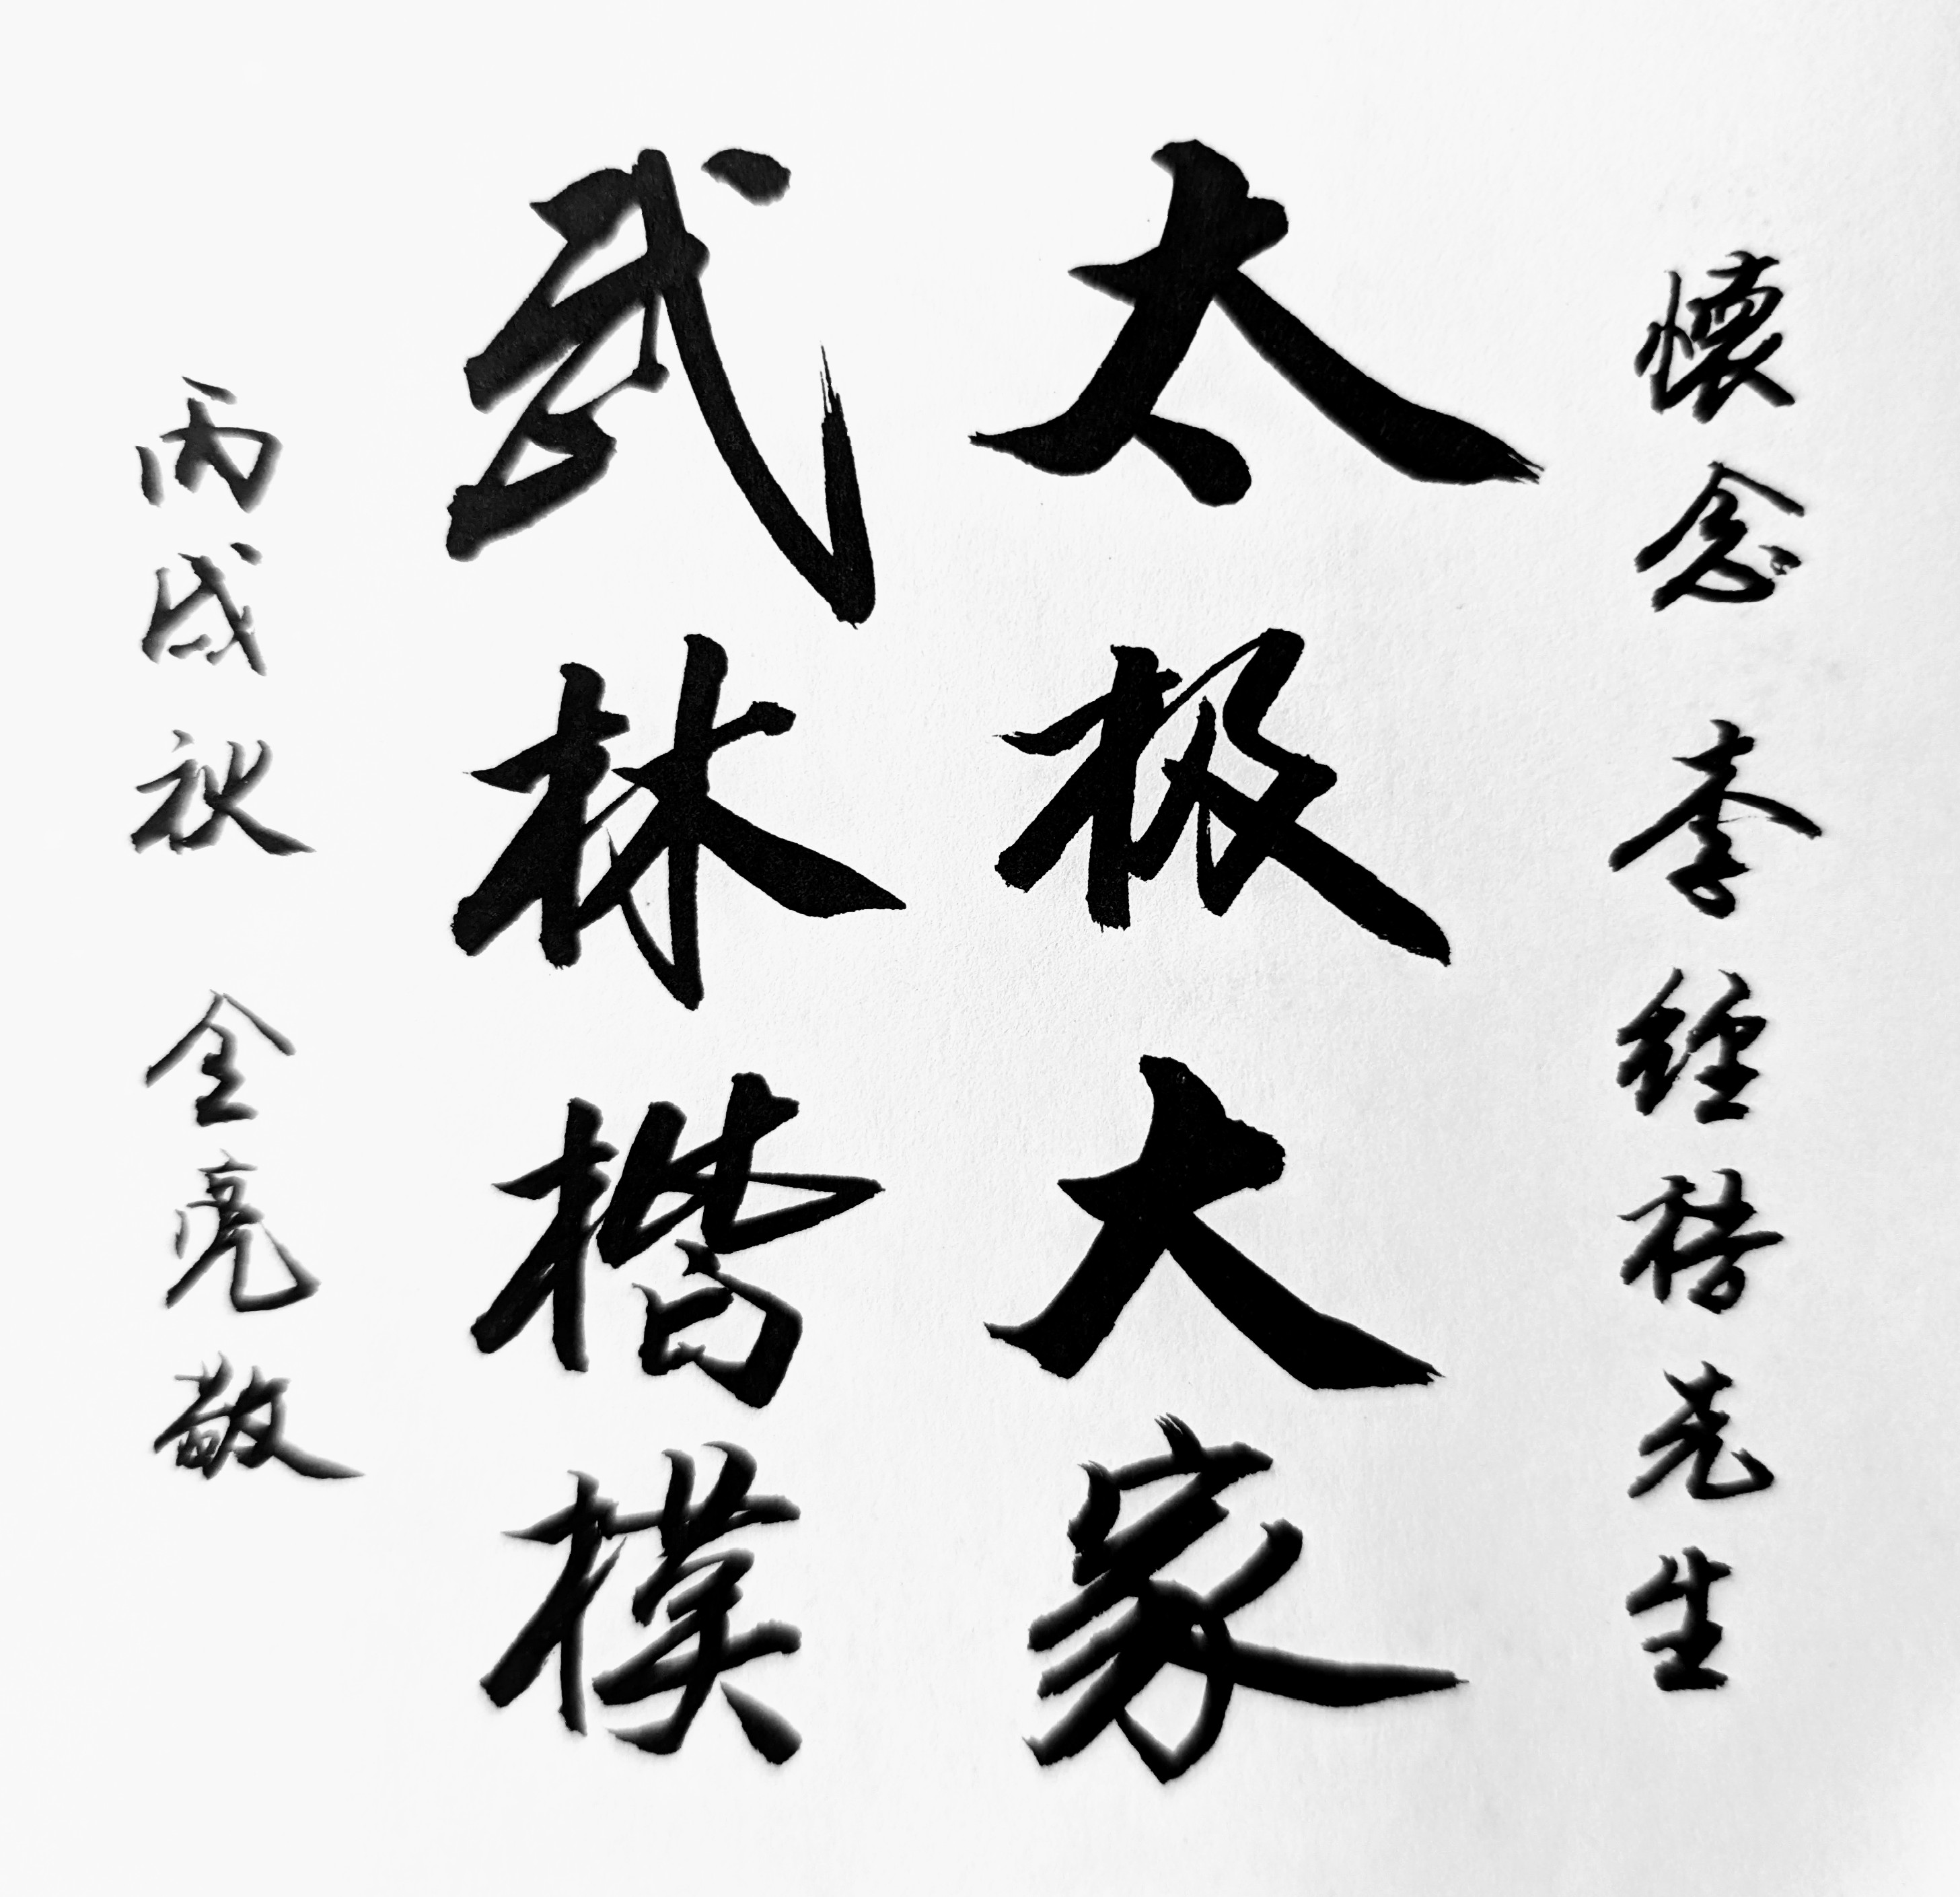 懷念李經梧先生
太极大家
武林楷模
丙戌秋全亮敬